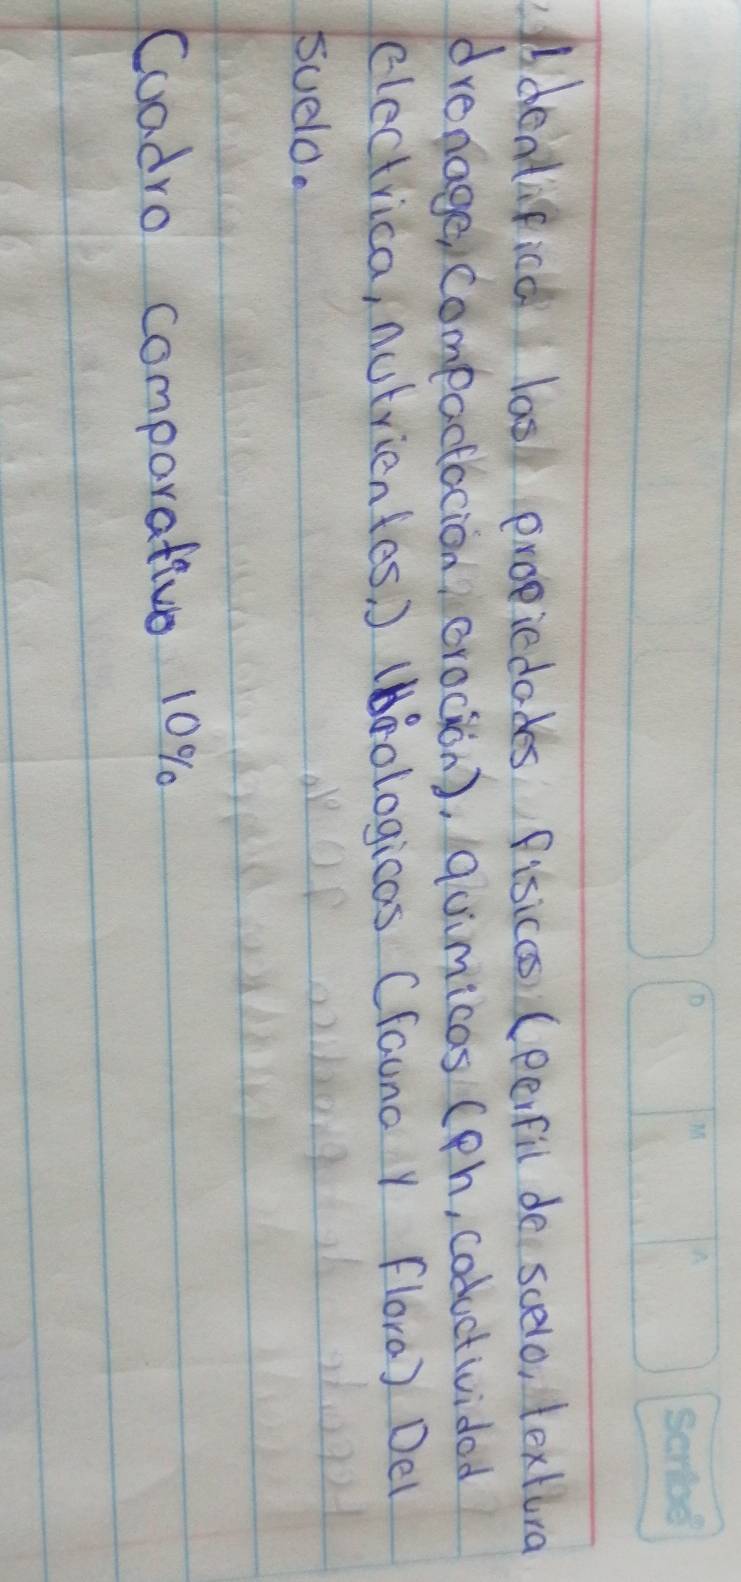 D M A Scribe
Identifica las propiedades fisicas (perfil de suelo, textura
drenage, compactación, eroción), quimicas (ph, coductividad
electrica, nutrientes,) (biologicas (fauna y flora) Del
suelo.
Cuadro comparativo 10%